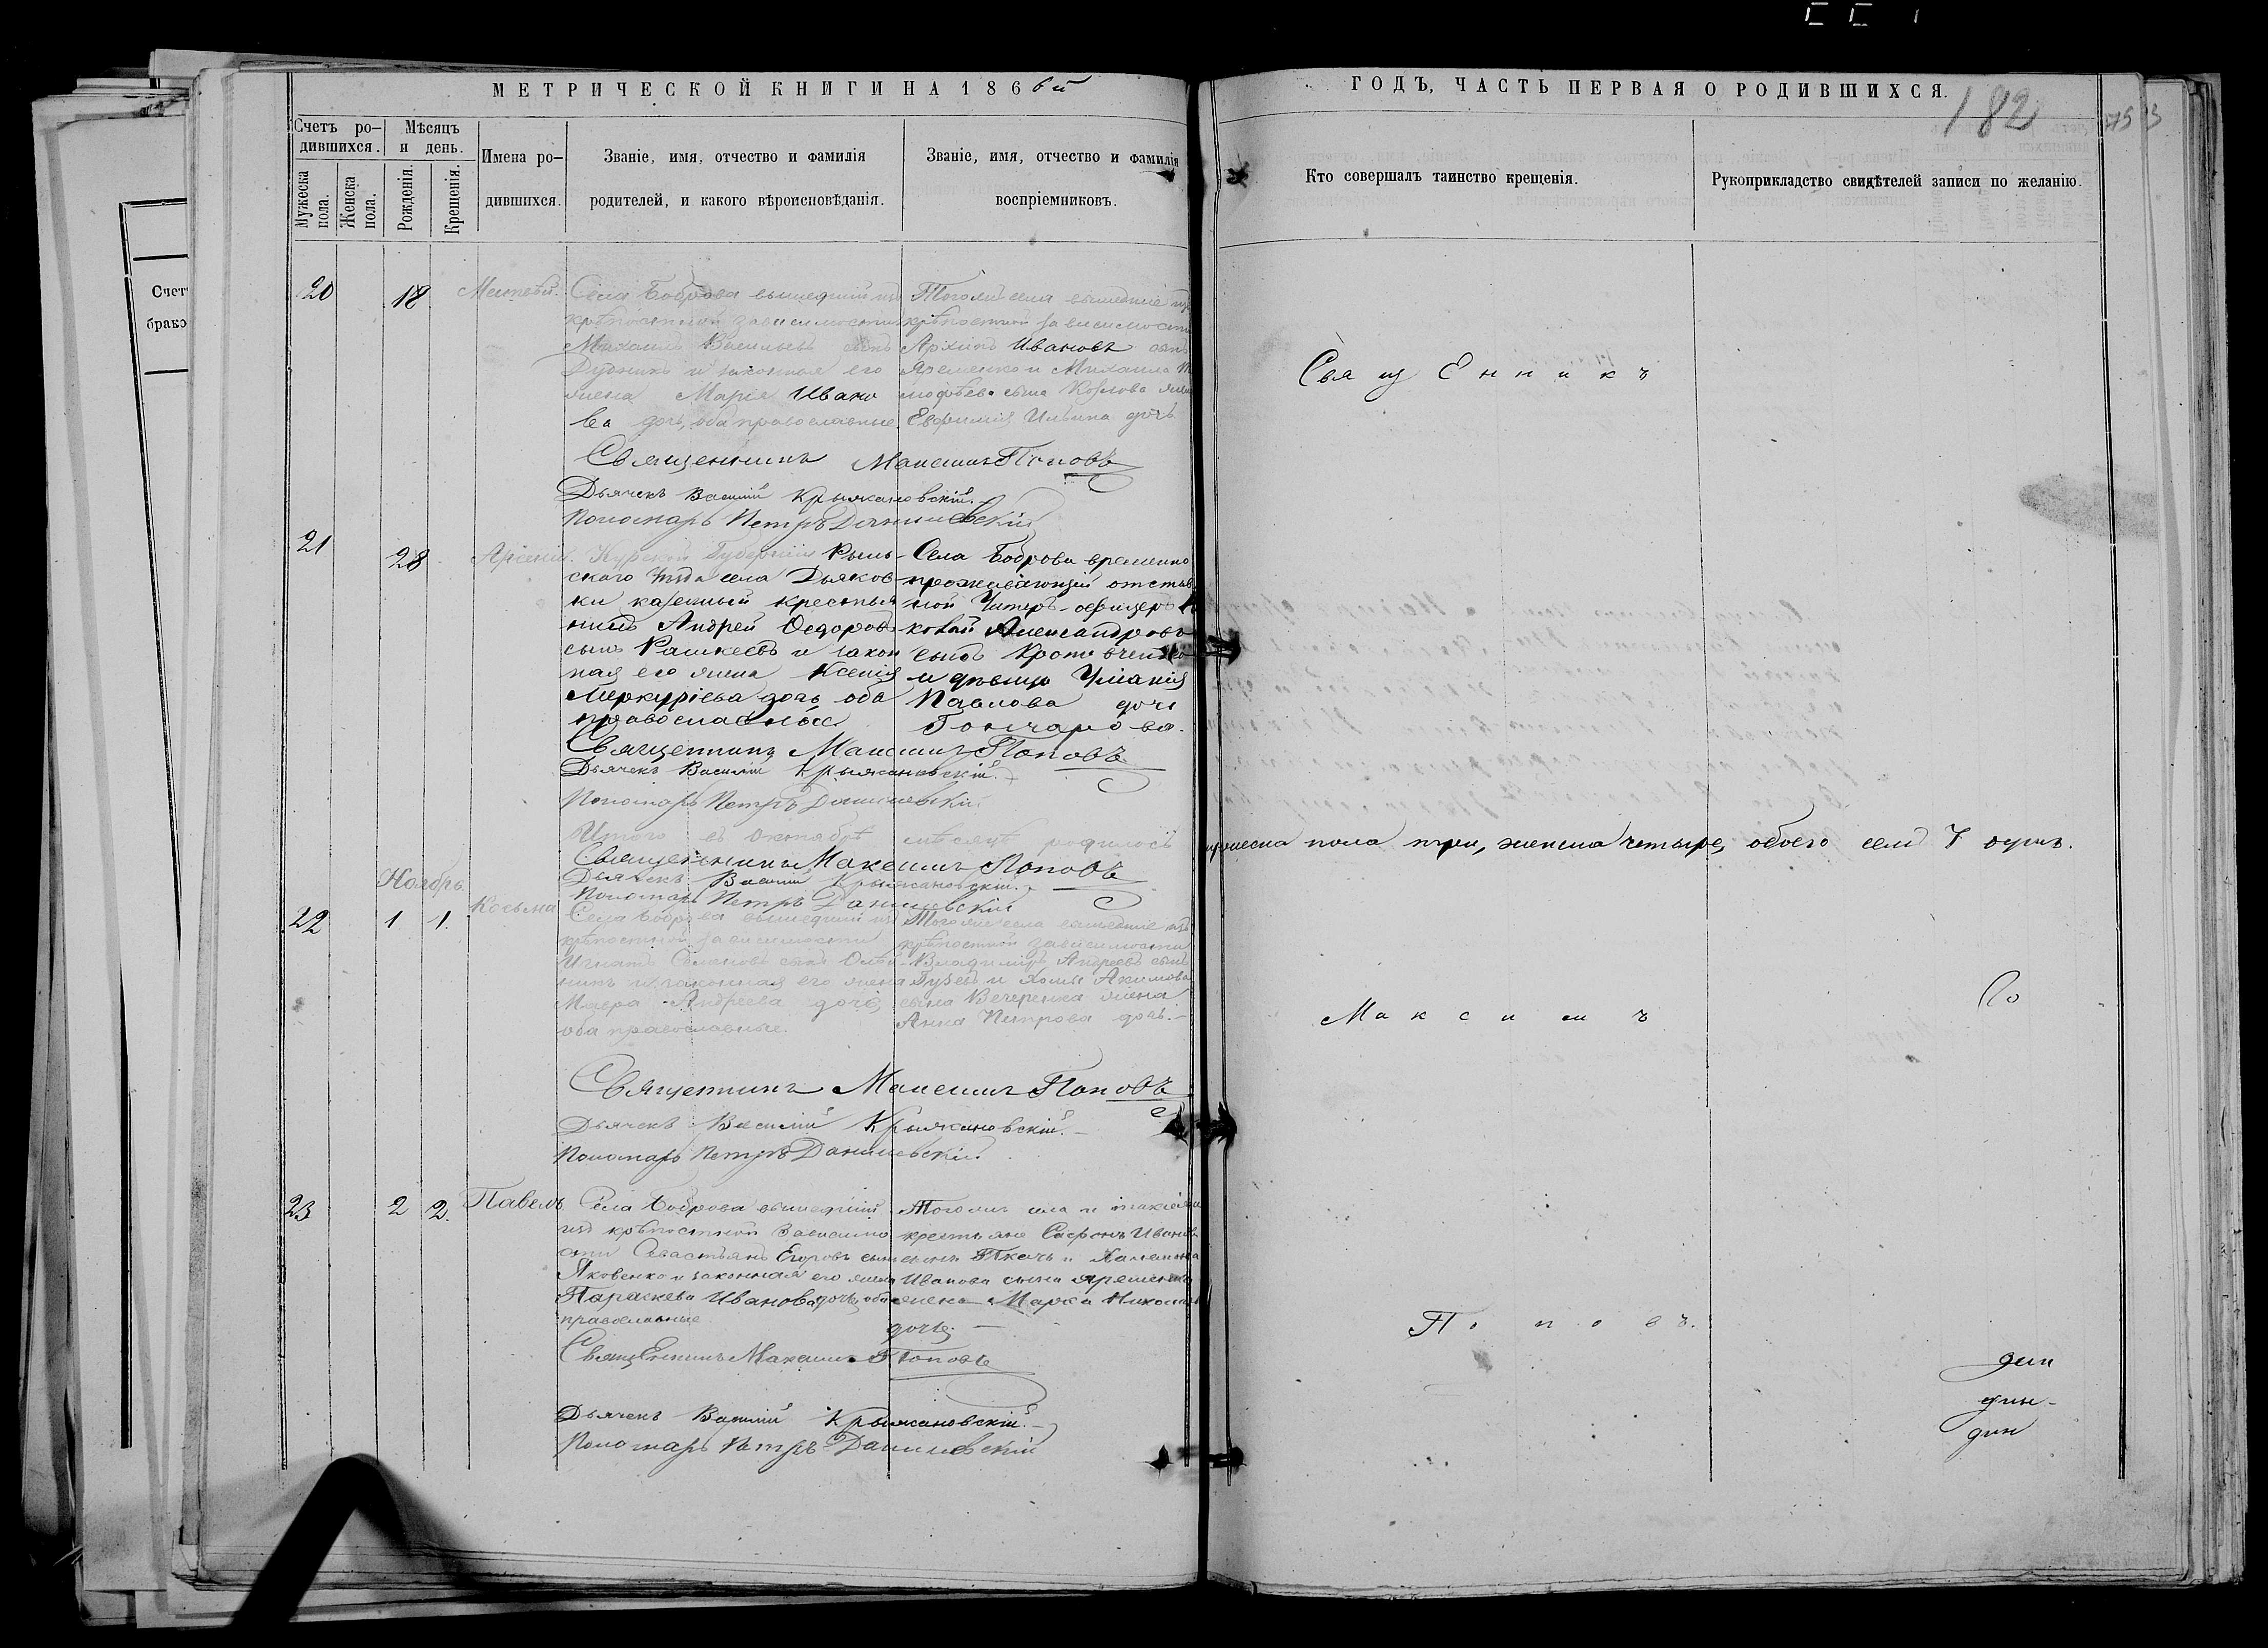 МЕТРИЧЕСКОЙ КНИГИ НА 1866й
ГОДЪ, ЧАСТЬ ПЕРВАЯ О РОДИВШИХСЯ.
182
Счетъ ро-
дившихся.
Мѣсяцъ
и день.
Мужеска
пола.
Женска
пола.
Рожденія.
Крещенія.
Имена ро-
дившихся.
Званіе, имя, отчество и фамилія
родителей, и какого вѣроисповѣданія.
Званіе, имя, отчество и фамилія
воспріемниковъ.
Кто совершалъ таинство крещенія.
Рукоприкладство свидѣтелей записи по желанію.
Счет
брако
20
18
Села Боброва вышедшій изъ
крѣпостной зависимости
Михаилъ Васильевъ сынъ
и законная его
жена Марія Ивано
ва дочь, оба православные.
Тогоже села вышедшіе изъ
крѣпостной зависимости
Архипъ Ивановъ сынъ
Яременко и Михаила
сына Козлова жена
Евфимія Ильина дочь
Священникъ Максимъ Поповъ
Дьячекъ Василій Крыжановскій.
Пономарь Петръ Данилевскій
Священникъ
21
28
Арсеній.
Курской Губерніи Рыль-
скаго уѣзда села Дьяков-
ки казенный крестья
нинъ Андрей Ѳедоровъ
сынъ Рашкеевъ и закон
ная его жена Ксенія
Меркуріева дочь оба
православные.
Села Боброва временно
проживающій отстав
ной Унтеръ-офицеръ
Александровъ
сынъ
и дѣвица Уліанія
Павлова дочь
Гончарова.
Священникъ Максимъ Поповъ
Дьячекъ Василій Крыжановскій.
Пономарь Петръ Данилевскій.
Итого въ Октябрѣ мѣсяцѣ родилось мужеска пола три, женска четыре, обоего семь 7 душъ.
Священникъ Максимъ Поповъ
Дьячекъ Василій Крыжановскій.
Пономарь Петръ Данилевскій
Ноябрь.
22
1
1.
Косьма
Села Боброва вышедшій изъ
крѣпостной зависимости
Игнатъ сынъ Олей-
никъ и законная его жена
Мавра Андреева дочь,
оба православные.
Тогоже села вышедшіе изъ
крѣпостной зависимости
Владиміръ Андреевъ сынъ
Гузевъ и Хомы Акимова
сына Вечеренка жена
Анна Петрова дочь.
Священникъ Максимъ Поповъ
Дьячекъ Василій Крыжановскій.
Пономарь Петръ Данилевскій.
Максимъ
По
23
2
2.
Павелъ
Села Боброва вышедшій
изъ крѣпостной зависимо
сти Севастьянъ Егоровъ сынъ
Яковенко и законная его жена
Параскева Иванова дочь, оба
православные
Тогоже села и такіеже
крестьяне Сафонъ Ивановъ
сынъ Ткачъ и
Иванова сына Яременка
жена Марѳа
дочь.
Священникъ Максимъ Поповъ
Дьячекъ Василій Крыжановскій.
Пономарь Петръ Данилевскій
Поповъ.